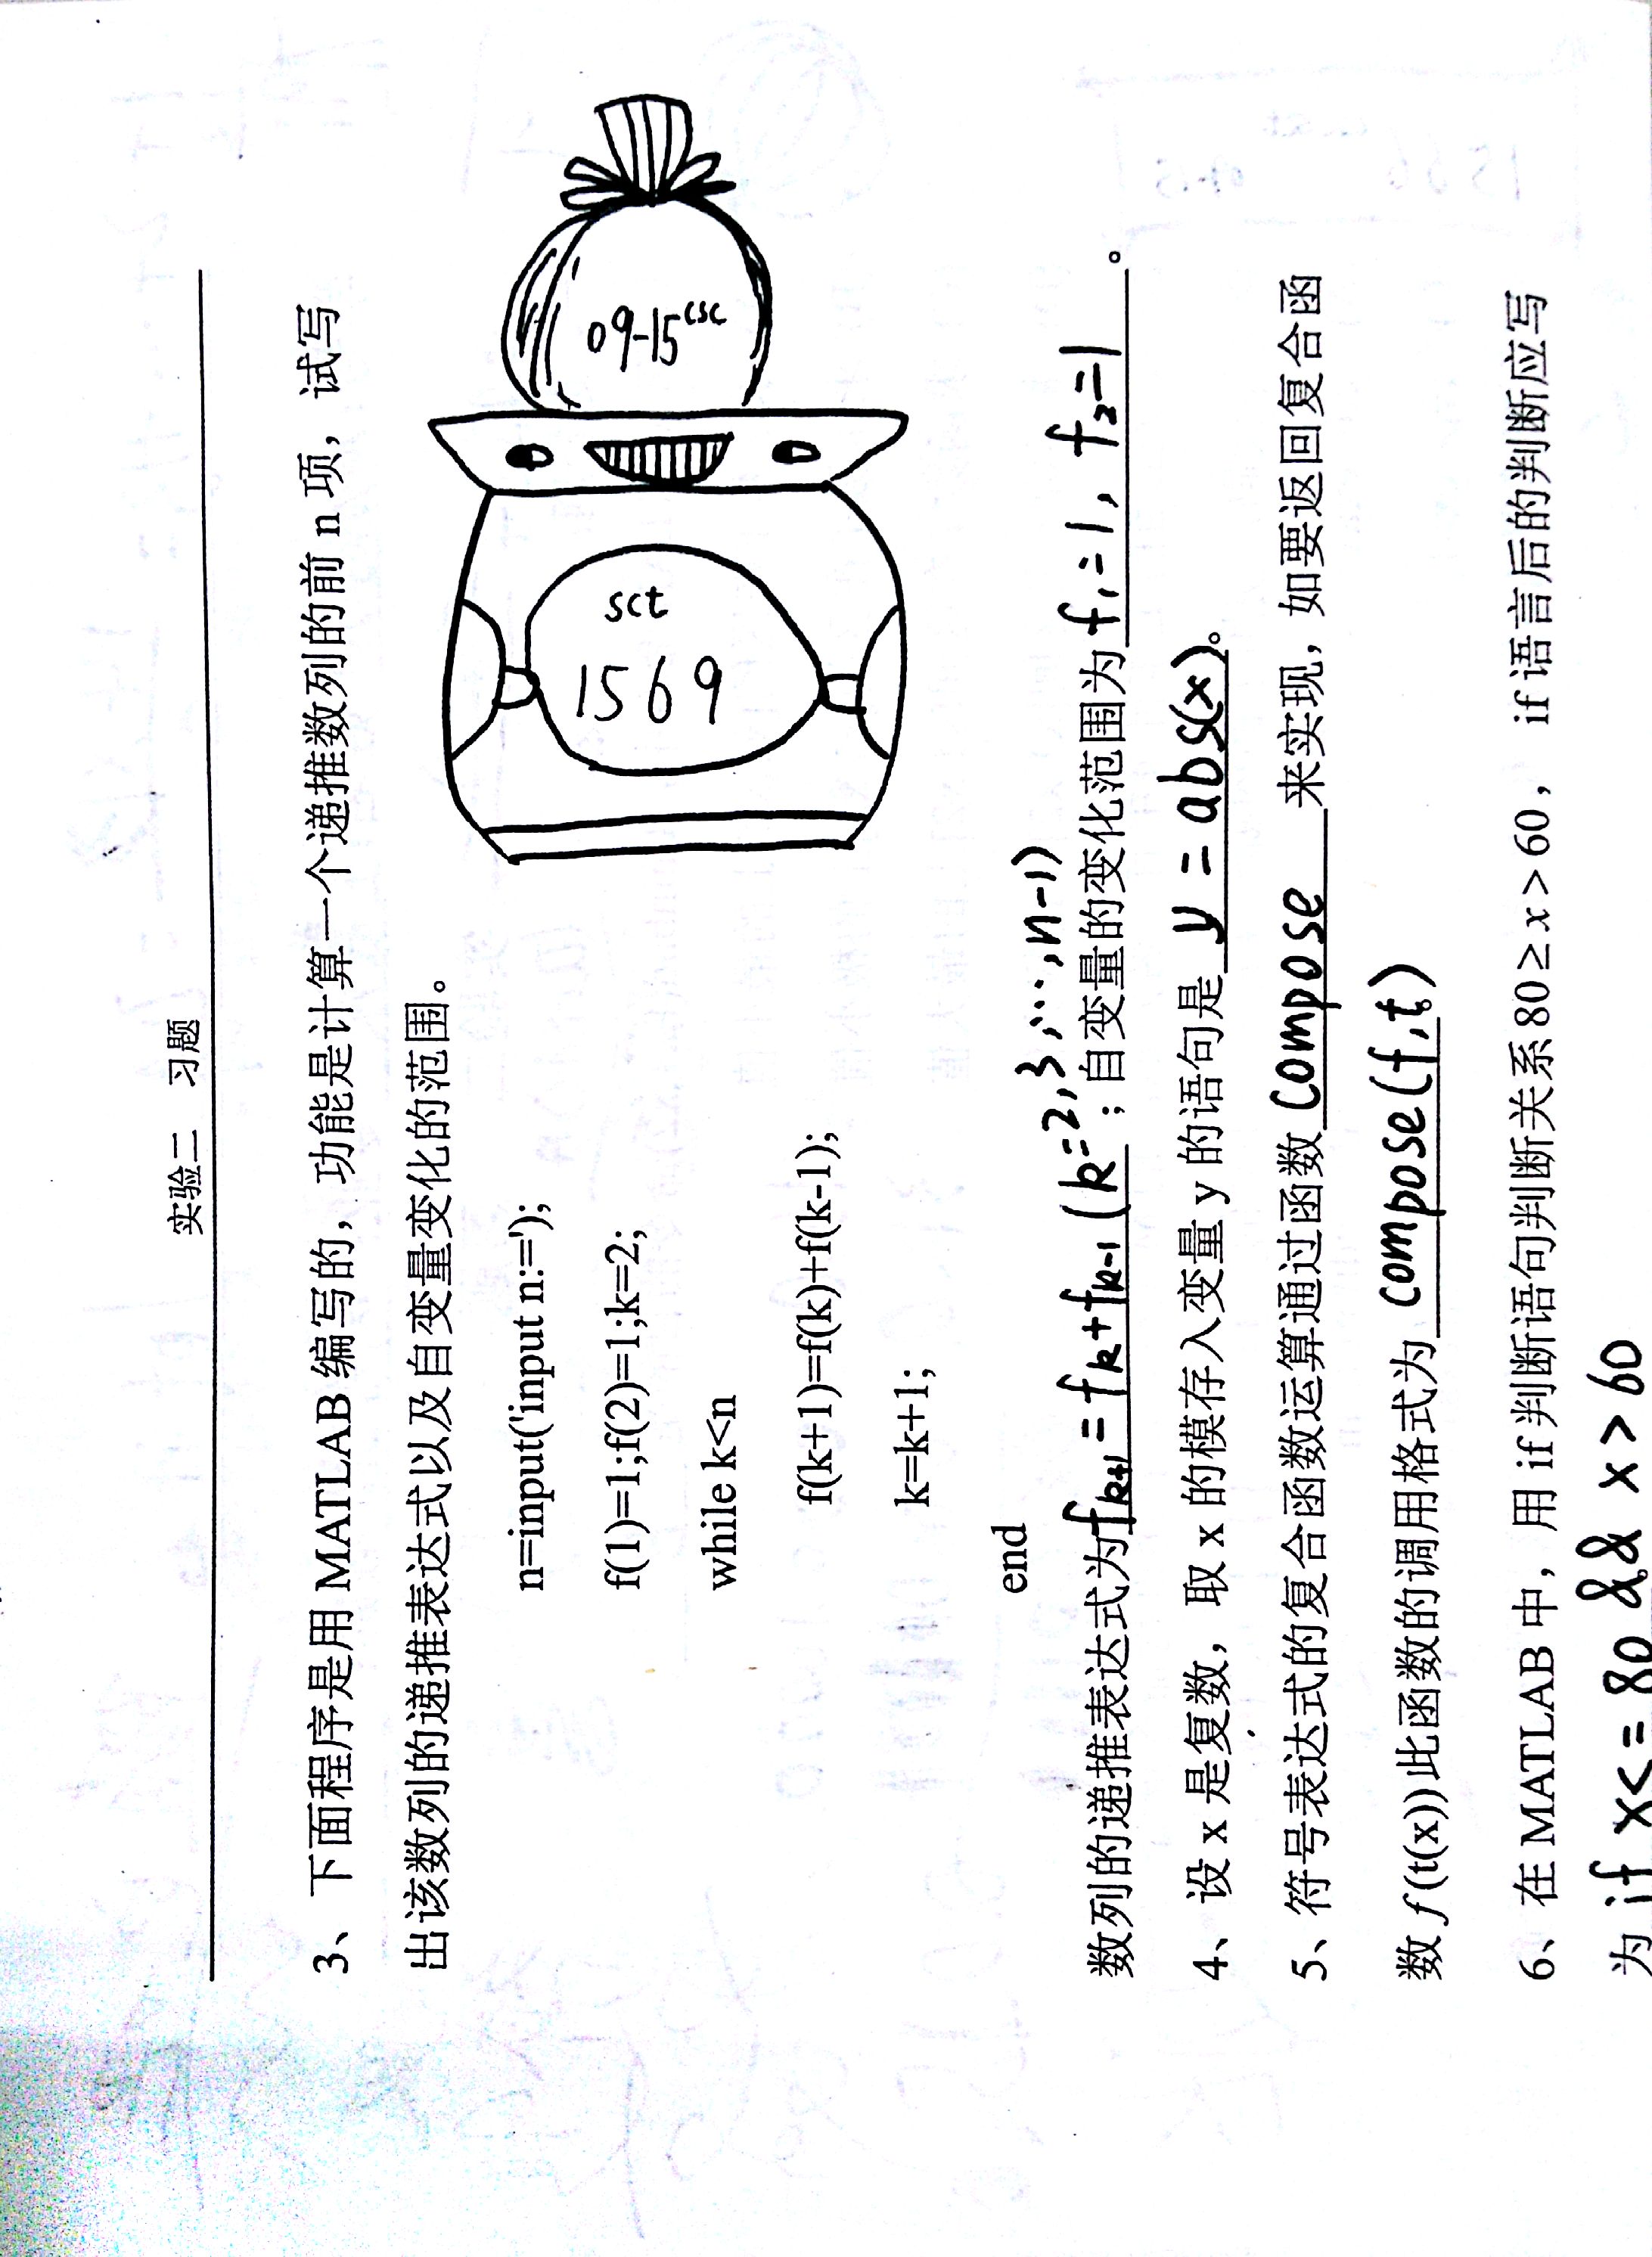 实验二 习题
3、下面程序是用 MATLAB 编写的，功能是计算一个递推数列的前 n 项，试写
出该数列的递推表达式以及自变量变化的范围。
n=input('input n:=');
f(1)=1;f(2)=1;k=2;
while k<n
f(k+1)=f(k)+f(k-1);
k=k+1;
end
09-15 csc
sct
1569
数列的递推表达式为 fk+1 = fk + fk-1 (k=2,3,…,n-1) ；自变量的变化范围为 f1=1, f2=1 。
4、设 x 是复数，取 x 的模存入变量 y 的语句是 y = abs(x)。
5、符号表达式的复合函数运算通过函数 compose 来实现，如要返回复合函
数 f(t(x))此函数的调用格式为 compose(f,t)。
6、在 MATLAB 中，用 if 判断语句判断关系 80≥x>60， if 语言后的判断应写
为 if x<=80 && x>60